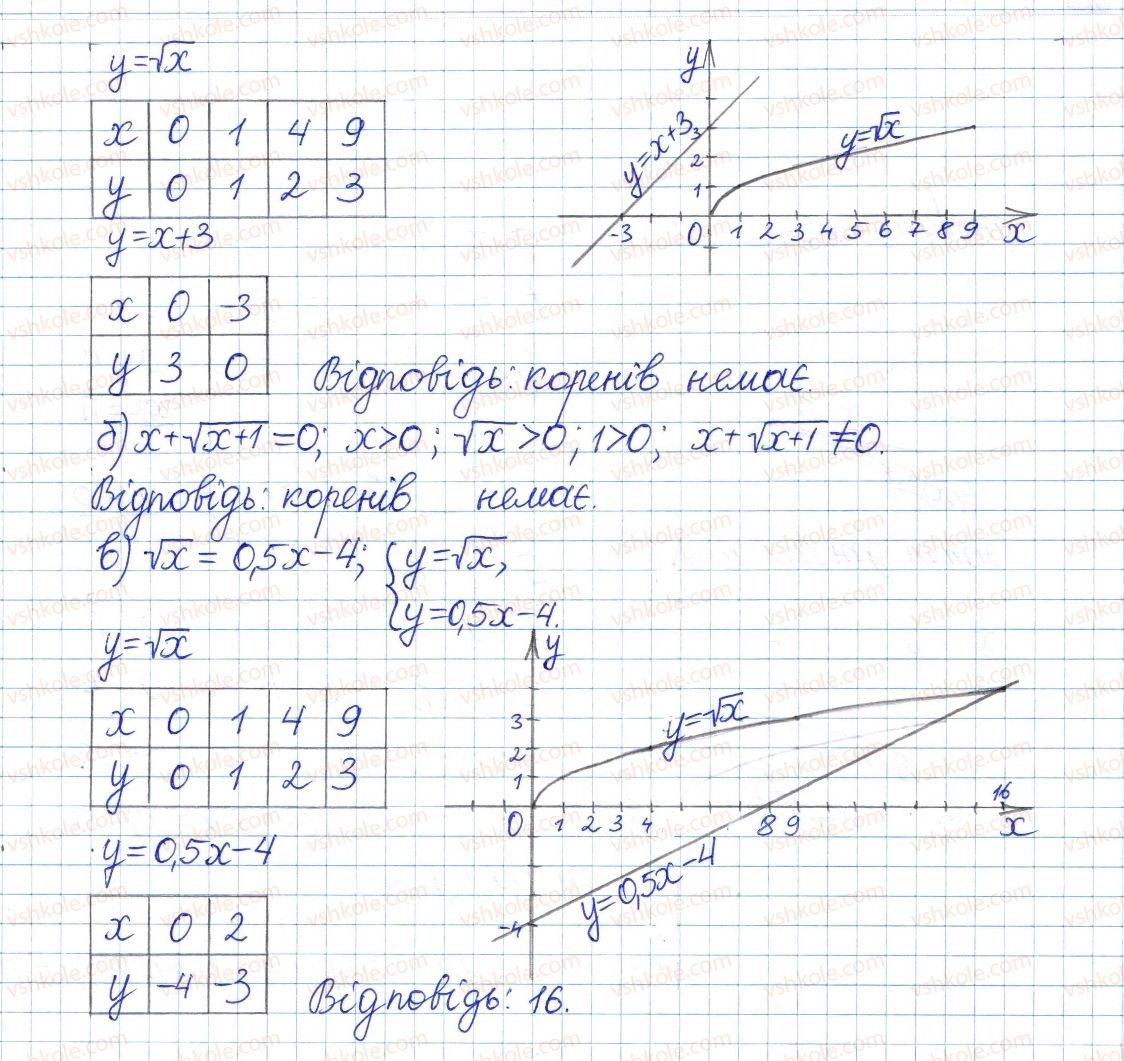 y=√x
x 0 1 4 9
y 0 1 2 3
y=x+3
x 0 -3
y 3 0
y
y=x+3
y=√x
3
2
1
-3 0 1 2 3 4 5 6 7 8 9 x
Відповідь: коренів немає.
б) x+√x+1=0; x>0; √x>0; 1>0; x+√x+1≠0.
Відповідь: коренів немає.
в) √x = 0,5x-4; { y=√x,
y=0,5x-4.
y=√x
x 0 1 4 9
y 0 1 2 3
y=0,5x-4
x 0 2
y -4 -3
y
y=√x
3
2
1
16
0 1 2 3 4 8 9 x
y=0,5x-4
-4
Відповідь: 16.
vshkole.com